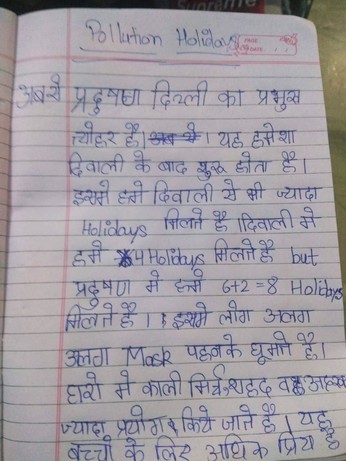 Supreme
Pollution Holidays
अबसे प्रदुषण दिल्ली का प्रमुख
त्योहर है। यह हमेशा
दिवाली के बाद शुरू होता है।
इसमे हमे दिवाली से भी ज्यादा
Holidays मिलते है। दिवाली मे
हमे 4 Holidays मिलते है but
प्रदुषण मे हमे 6+2=8 Holidays
मिलते है। इसमे लोग अलग
अलग Mask पहनके घूमते है।
घरो मे काली मिर्च शहद व
ज्यादा प्रयोग किये जाते है। यह
बच्चो के लिए अधिक प्रिय है